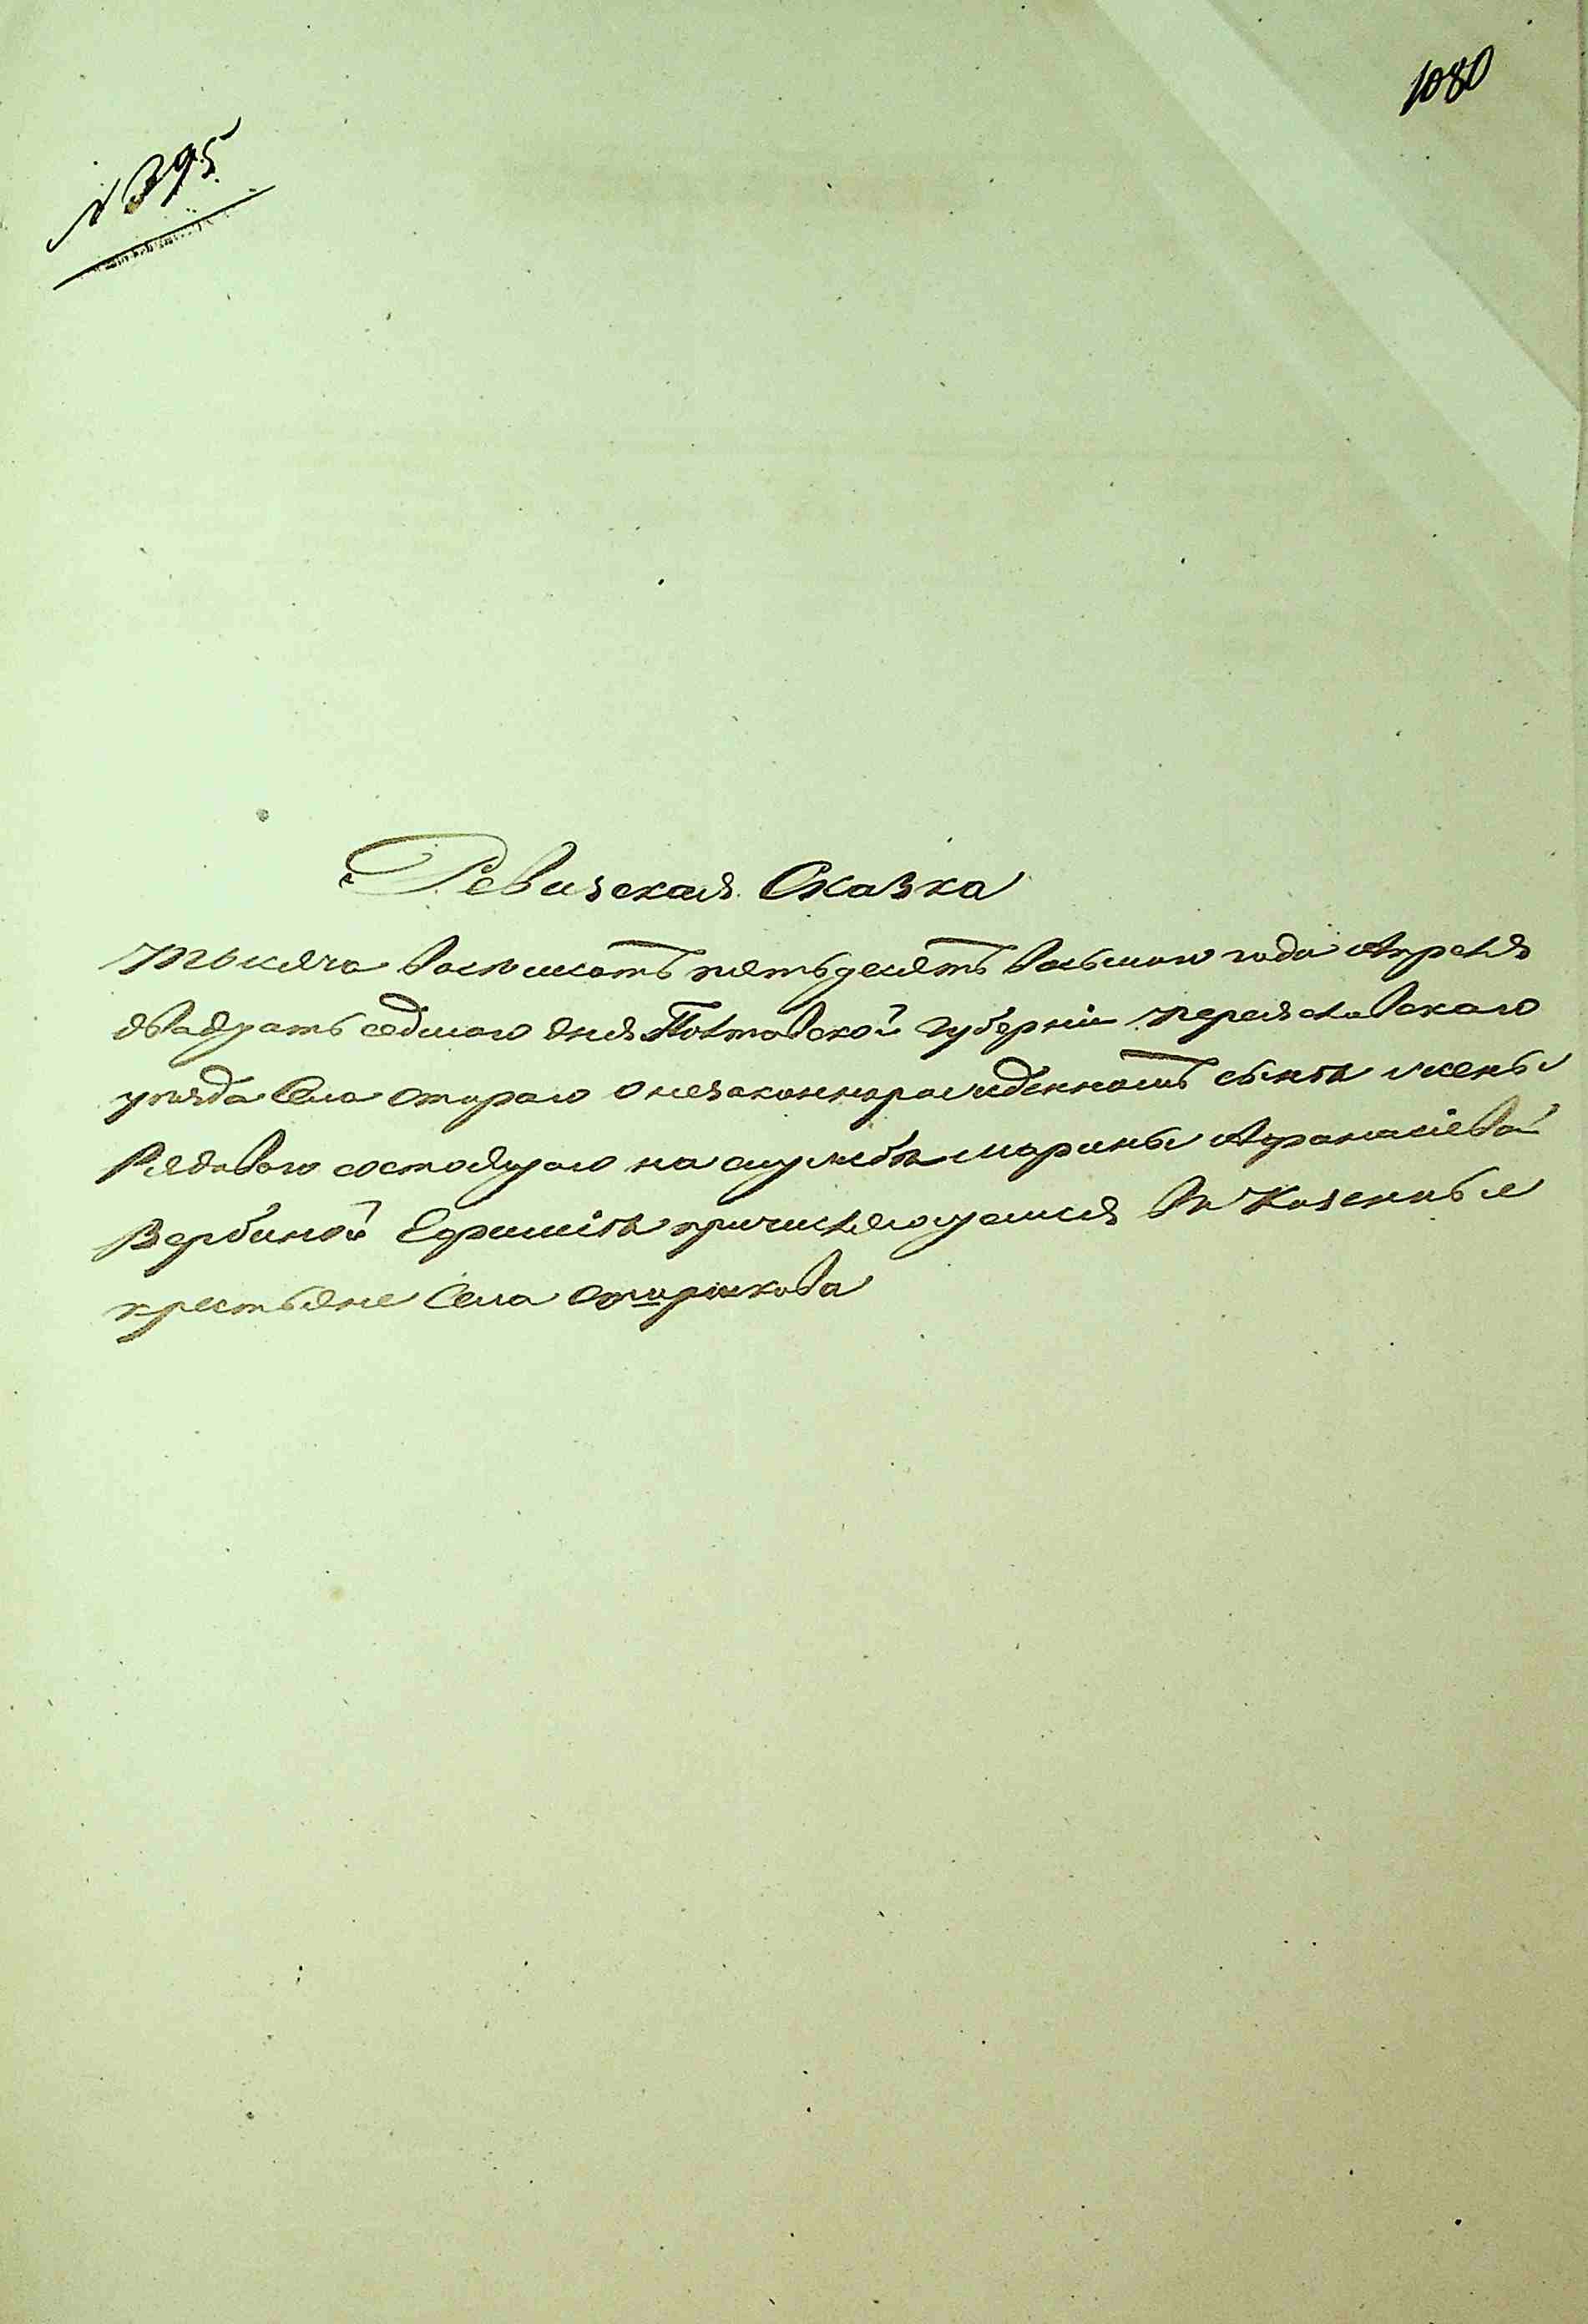 1080
№ 395
Ревизская Сказка
Тысяча восемсотъ пятьдесятъ восьмого года Апреля
двадцать седмаго дня Полтавской губерніи Переяславского
уезда Села Стараго о незаконнорожденномъ сыне жены
Рядового состоящаго на службе Марины Афанасіевой
Вербиной Ефиміе причисляющемся въ Казенные
крестьяне Села Старикова